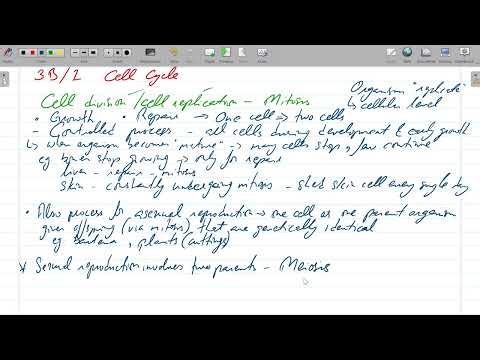 3B/2 Cell Cycle
Organism "replicate"
↳ cellular level
Cell division/cell replication – Mitosis
• Growth • Repair → One cell → two cells
- Controlled process – all cells during development & early growth
↳ when organism becomes "mature" → many cells stop, few continue
eg brain stop growing → only for repair
liver – repair – mitosis
skin – constantly undergoing mitosis – shed skin cell every single day
• Also process for asexual reproduction → one cell or one parent organism
gives offspring (via mitosis) that are genetically identical
eg bacteria, plants (cuttings)
* Sexual reproduction involves two parents – Meiosis